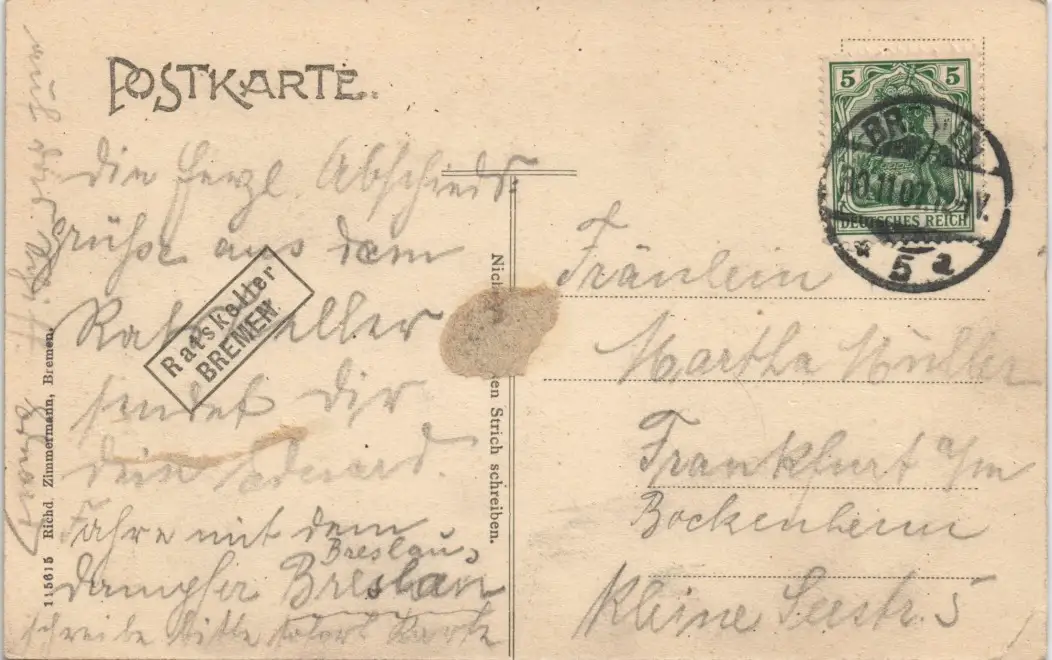 POSTKARTE.
5 5
DEUTSCHES REICH
BREMEN
11.07.
5 a
die herzl Abschieds
grüße aus dem
Ratskeller
sendet dir
dein Eduard.
Fahre mit dem
Breslau,
dampfer Breslau
schreibe bitte sofort Karte
Ratskeller
BREMEN
Fräulein
Martha Müller
Frankfurt a/m
Bockenheim
Kleine Seestr. 5
Nich en Strich schreiben.
115615 Richd. Zimmermann, Bremen.